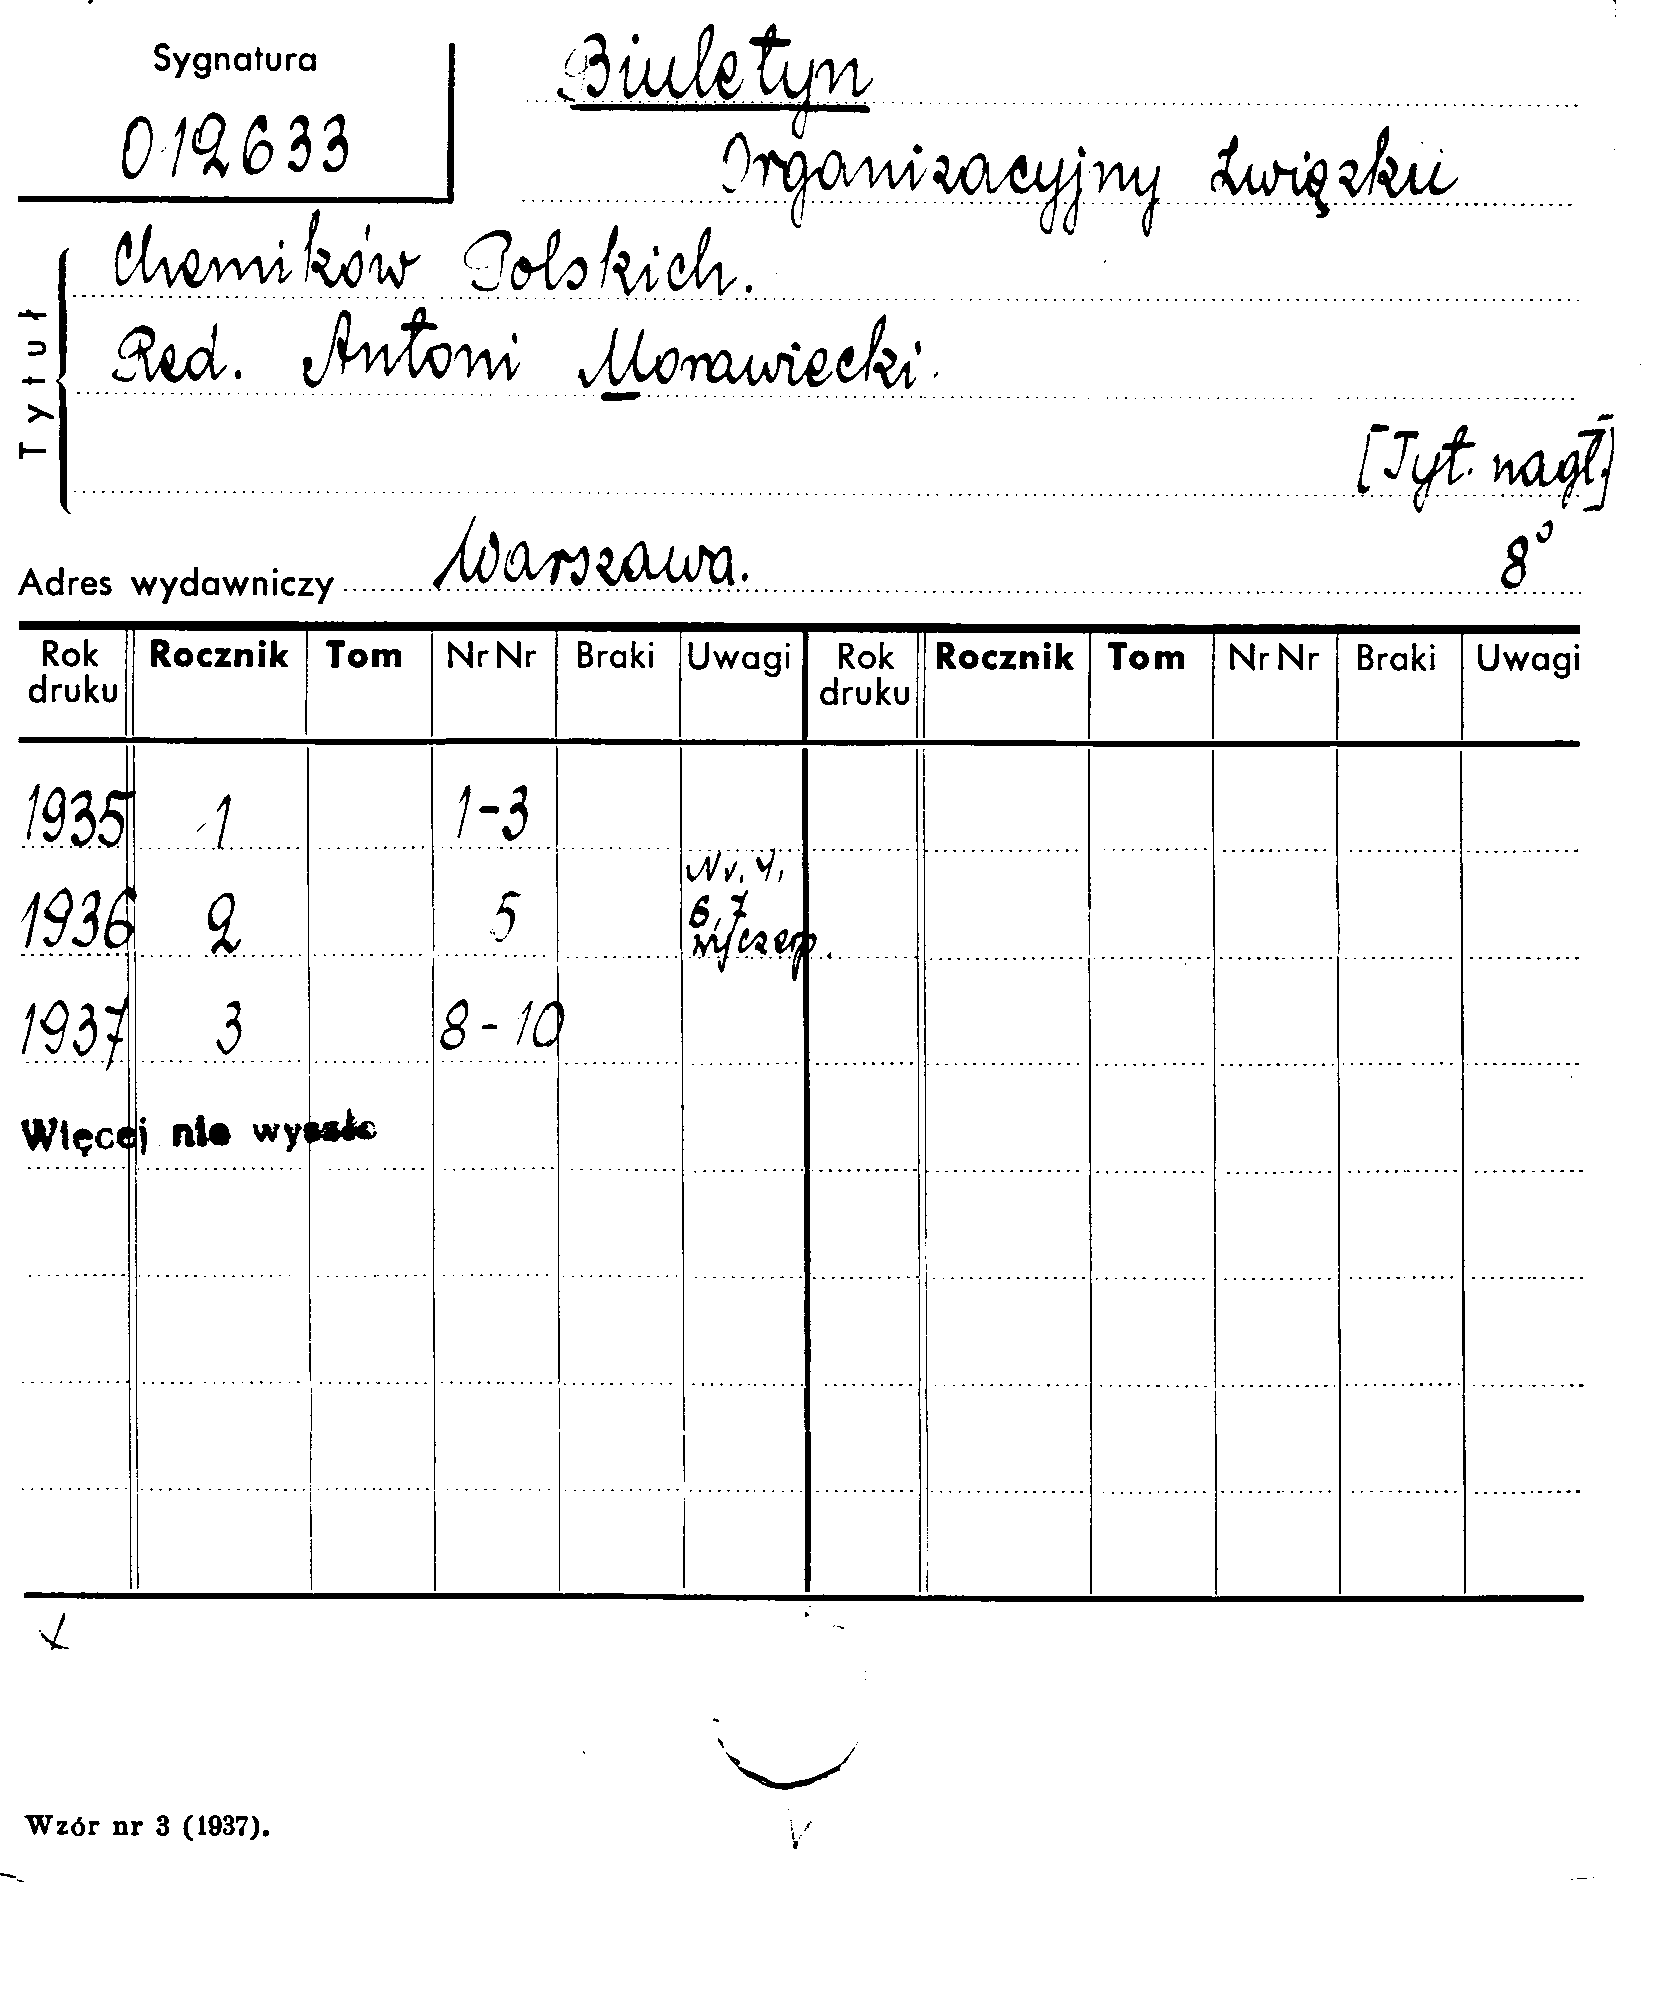 Sygnatura
012633
Biuletyn
Organizacyjny Związku
Chemików Polskich.
Red. Antoni Morawiecki.
[Tyt. nagł.]
Tytuł
Adres wydawniczy Warszawa. 8°
Rok druku Rocznik Tom Nr Nr Braki Uwagi Rok druku Rocznik Tom Nr Nr Braki Uwagi
1935 1 1-3
1936 2 5 Nr. 4, 6, 7 wyczerp.
1937 3 8-10
Więcej nie wyszło
Wzór nr 3 (1937).